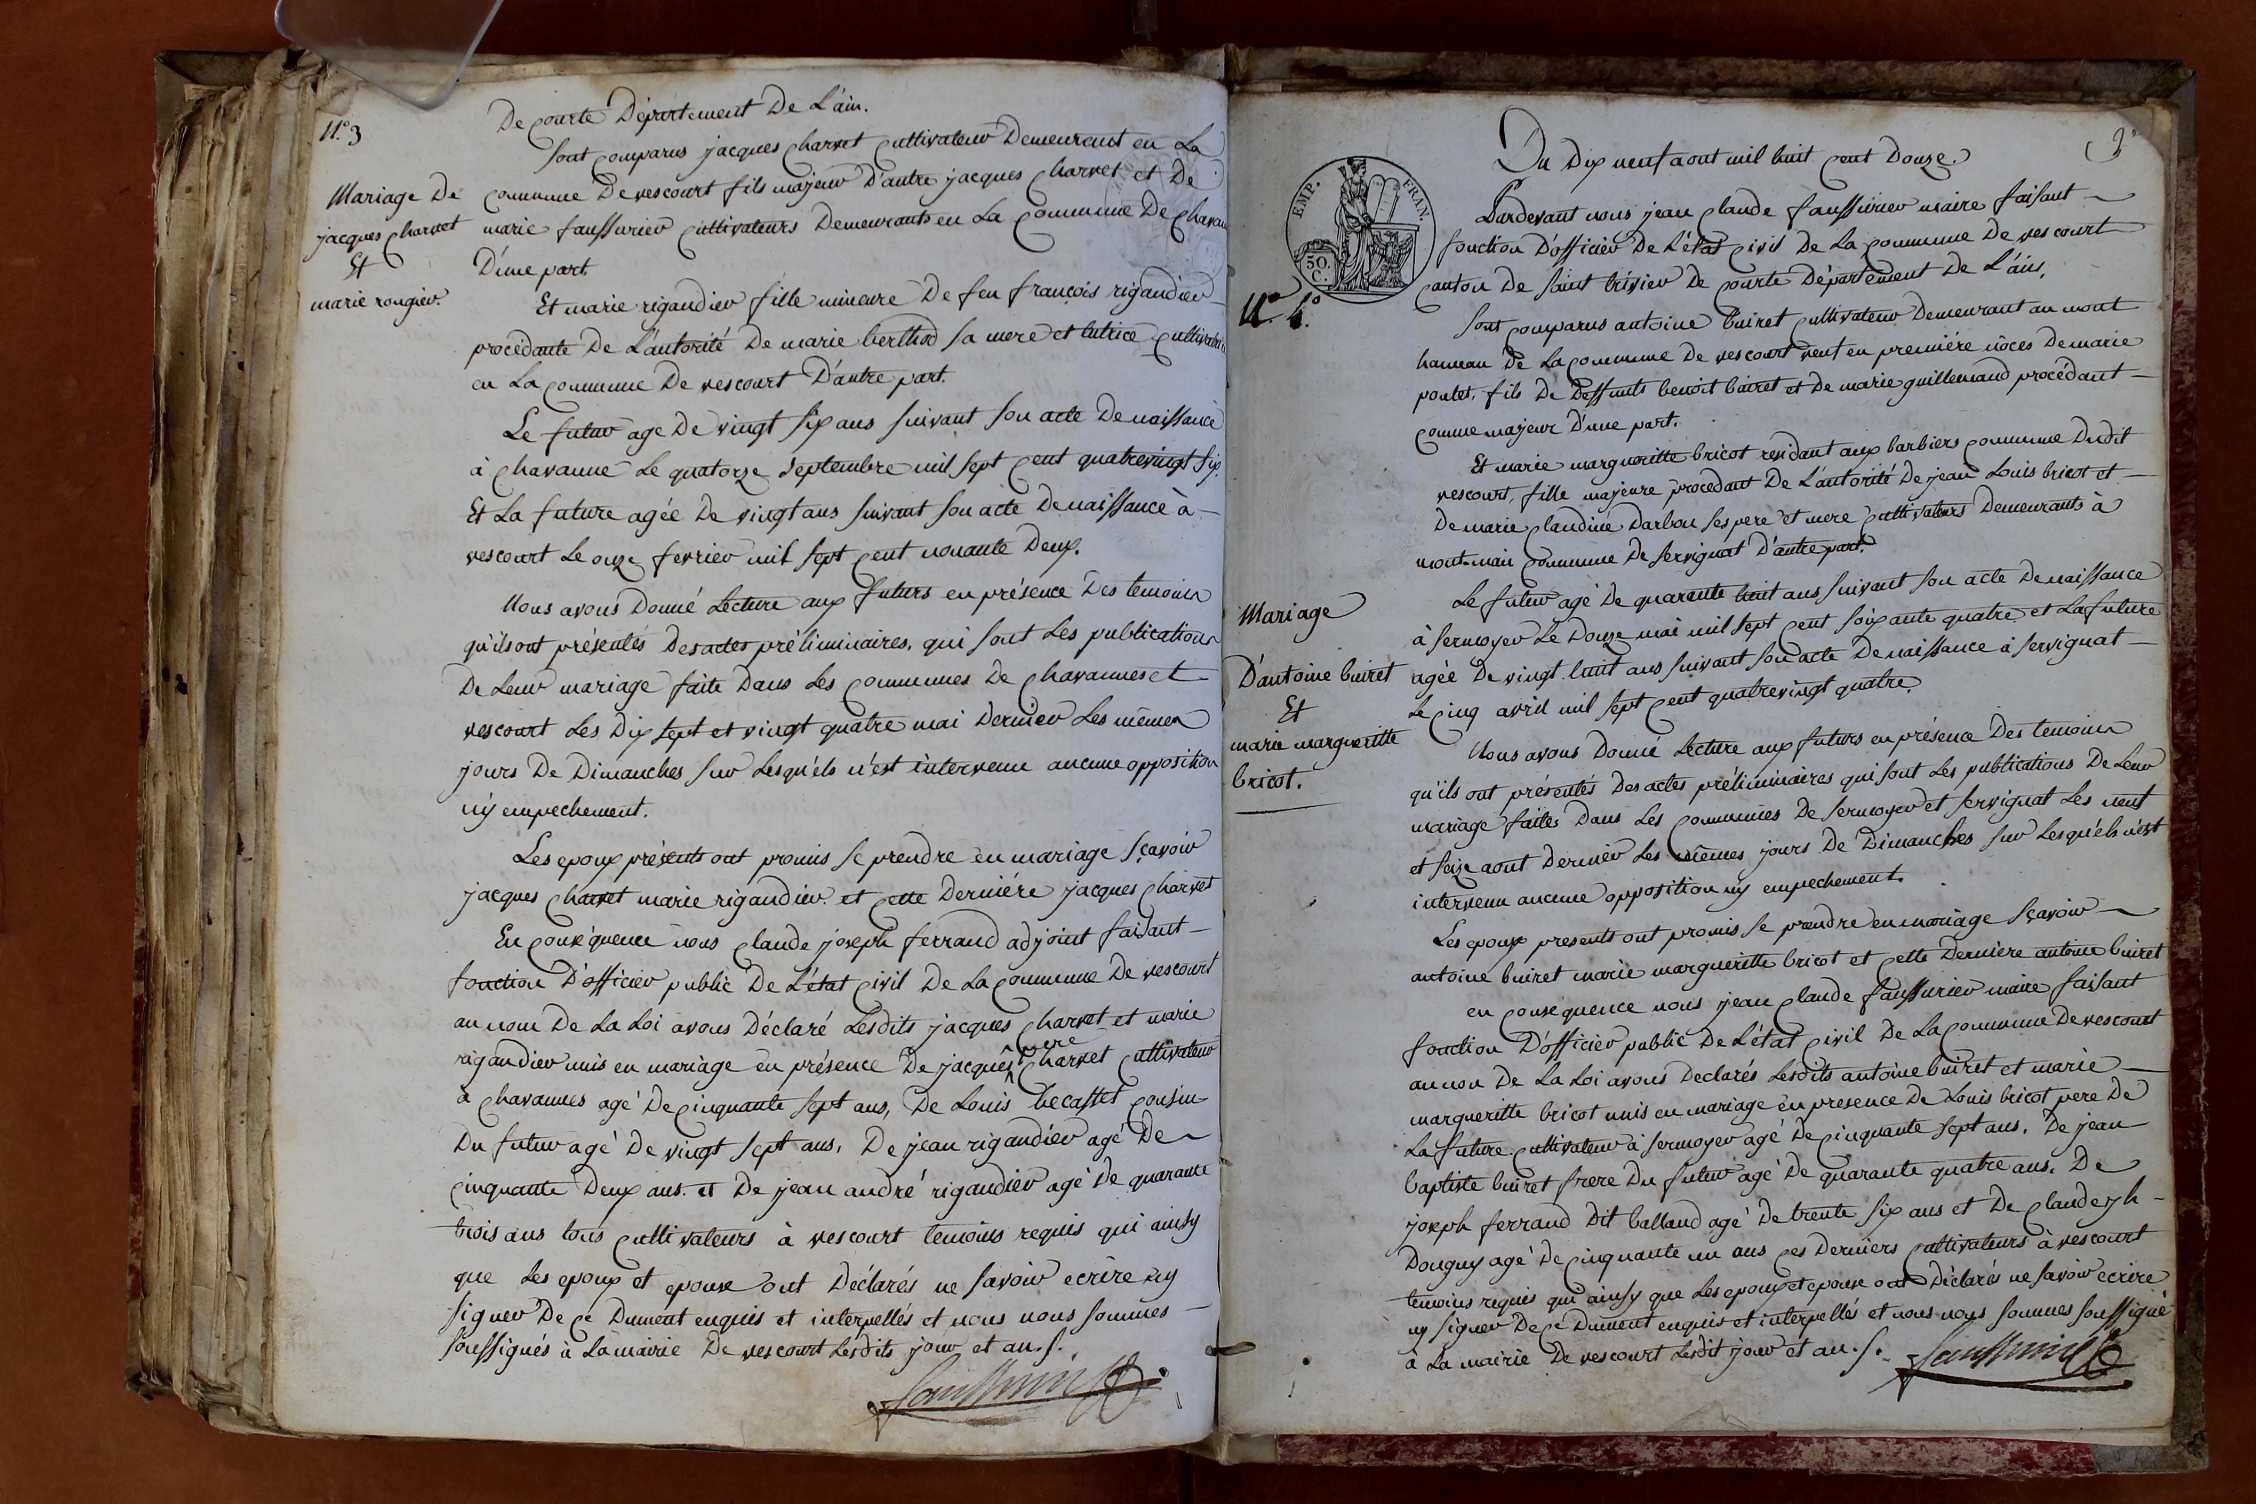 N.o 3
Mariage De
jacques Charvet
Et
marie rougier.
De Courte Département De L'ain.
Sont Comparus jacques Charvet Cultivateur Demeurant en La
Commune De vescourt fils majeur D'autre jacques Charvet et De
marie faussurier Cultivateurs Demeurants en La Commune De Chavan
D'une part
Et marie rigaudier fille mineure De feu françois rigaudier
procédante De L'autorité De marie berthod sa mere et tutrice Cultivatrice
en La Commune De vescourt D'autre part.
Le futur age De vingt six ans suivant son acte De naissance
à Chavanne Le quatorze septembre mil sept Cent quatrevingt six.
Et La future agée De vingt ans suivant son acte De naissance à
vescourt Le onze fevrier mil sept Cent nonante Deux.
Nous avons Donné Lecture aux futurs en présence Des temoins
qu'ils ont présentés Des actes préliminaires, qui sont Les publications
De Leur mariage faite Dans Les Communes De Chavannes et
vescourt Les Dix sept et vingt quatre mai Dernier Les mêmes
jours De Dimanches sur Lesqu'els n'est intervenu aucune opposition
n'y empechement.
Les epoux présents ont promis se prendre en mariage sçavoir
jacques Charvet marie rigaudier. et Cette Derniére jacques Charvet
En Conséquence nous Claude joseph ferrand adjoint faisant
fonction D'officier public De L'état Civil De La Commune De vescourt
au nom De La Loi avons Déclaré Lesdits jacques Charvet et marie
rigaudier unis en mariage en présence De jacques pere Charvet Cultivateur
à Chavannes agé De Cinquante sept ans, De Louis becasset Cousin
Du futur agé De vingt sept ans, De jean rigaudier agé De
Cinquante Deux ans. et De jean andré rigaudier agé De quarante
trois ans tous Cultivateurs à vescourt temoins requis qui ainsy
que Les epoux et epouse ont Déclarés ne savoir ecrire ny
signer De Ce Dument enquis et interpellés et nous nous sommes
soussignés à La mairie De vescourt Lesdits jour et an. /.
2.
EMP. FRAN.
50. C.
N.o 4.o
Mariage
D'antoine buiret
Et
marie margueritte
bricot.
Du Dix neuf aout mil huit Cent Douze.
Pardevant nous jean Claude faussurier maire faisant
fonction D'officier De L'état Civil De La Commune De vescourt
Canton De saint trivier De Courte Département De L'ain,
sont Comparus antoine buiret Cultivateur Demeurant au mont
hameau De La Commune De vescourt veuf en première nôces De marie
poulet, fils De Deffunts benoit buiret et De marie guillemaud procédant
Comme majeur D'une part.
Et marie margueritte bricot residant aux barbiers Commune Dudit
vescourt, fille majeure procedant De L'autorité De jean Louis bricot et
De marie Claudine Darbon ses pere et mere Cultivateurs Demeurants à
montmain Commune De servignat D'autre part.
Le futur agé De quarante huit ans suivant son acte De naissance
à sermoyer Le Douze mai mil sept Cent soixante quatre et La future
agée De vingt huit ans suivant son acte De naissance à servignat
Le Cinq avril mil sept Cent quatrevingt quatre.
Nous avons Donné Lecture aux futurs en présence Des temoins
qu'ils ont présentés Des actes préliminaires qui sont Les publications De Leur
mariage faites Dans Les Communes De sermoyer et servignat Les neuf
et seize aout Dernier Les mêmes jours De Dimanches sur Lesqu'els n'est
intervenu aucune opposition ny empechement.
Les epoux presents ont promis se prendre en mariage sçavoir
antoine buiret marie margueritte bricot et Cette Derniere antoine buiret
en Conséquence nous jean Claude faussurier maire faisant
fonction D'officier public De L'état Civil De La Commune De vescourt
au nom De La Loi avons Declarés Lesdits antoine buiret et marie
margueritte bricot unis en mariage en presence De Louis bricot pere De
La future Cultivateur à sermoyer agé De Cinquante sept ans. De jean
baptiste buiret frere Du futur agé De quarante quatre ans. De
joseph ferrand Dit balland agé De trente six ans et De Claude jh
Donguy agé De Cinquante un ans Ces Derniers Cultivateurs à vescourt
temoins requis qui ainsy que Les epoux et epouse ont Déclarés ne savoir ecrire
ny signer De Ce Dument enquis et interpellés et nous nous sommes soussigné
à La mairie De vescourt Lesdit jour et an. /.